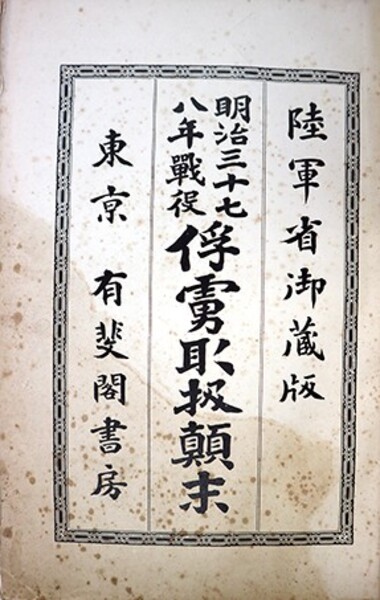 陸軍省御蔵版
明治三十七
八年戰役
俘虜取扱顛末
東京 有斐閣書房